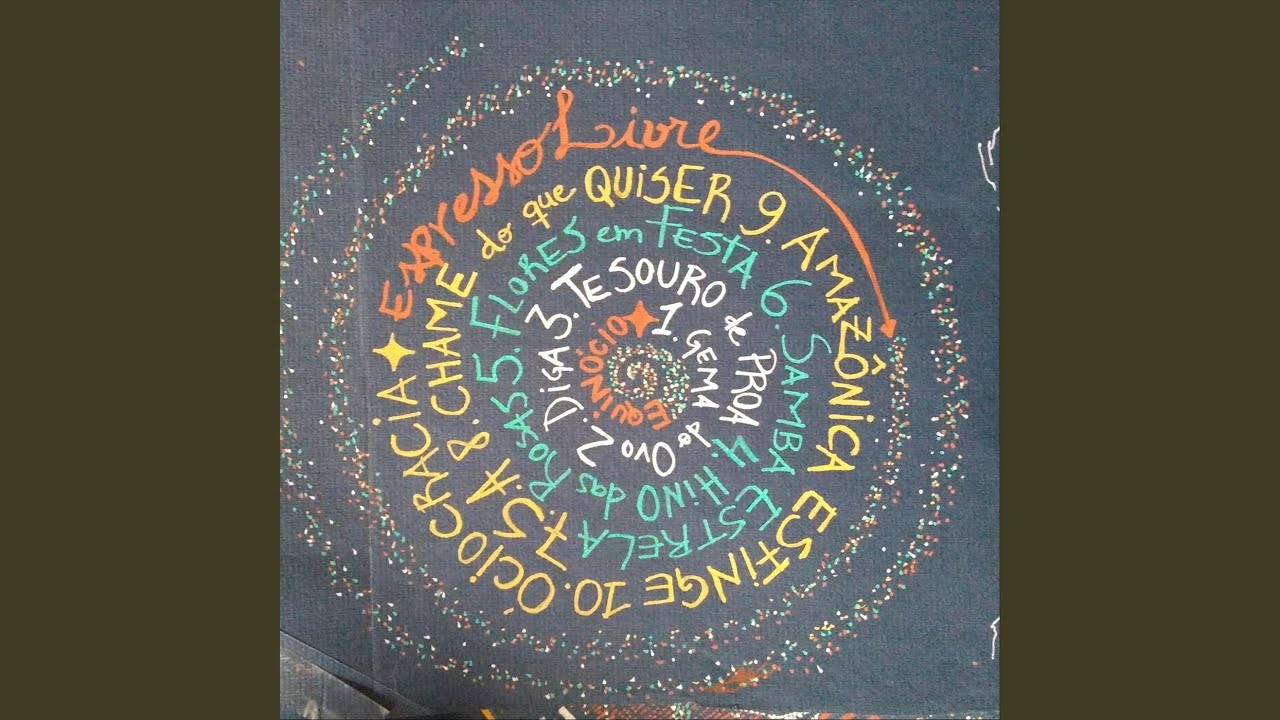 EQUINÓCIO
1. GEMA do OVO
2. DIGA
3. TESOURO de PROA
4. HINO das ROSAS
5. FLORES em FESTA
6. SAMBA ESTRELA
7. S.A
8. CHAME do que QUISER
9. AMAZÔNICA ESFINGE
10. ÓCIOCRACIA
expresso Livre